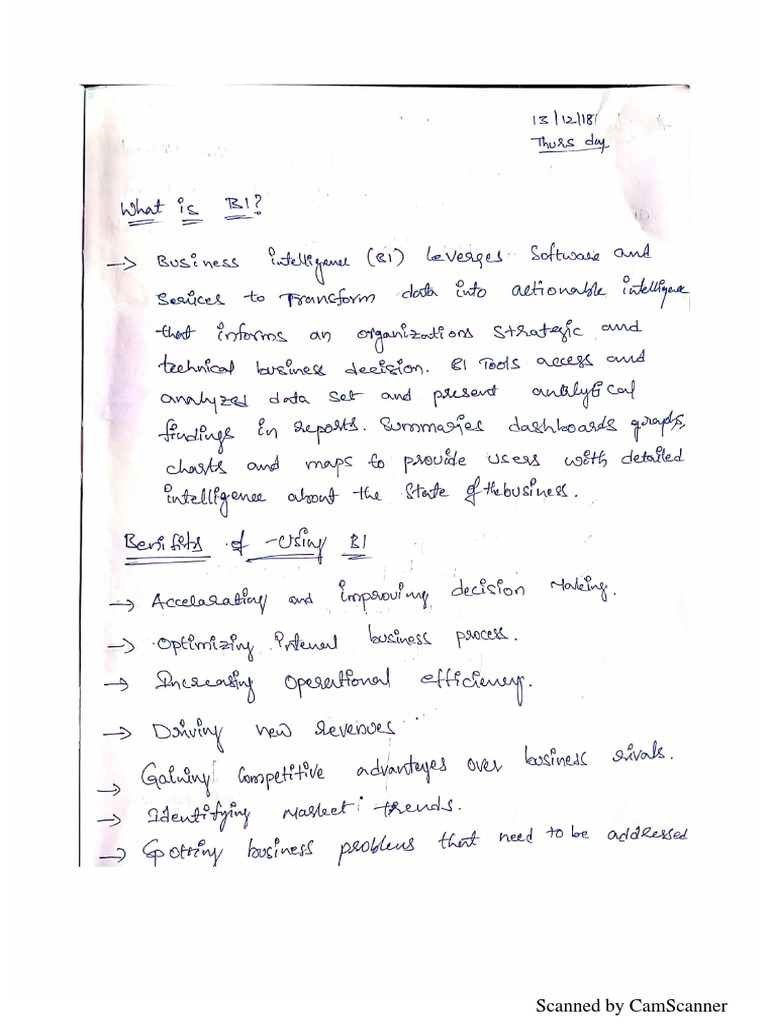 13/12/18
Thurs day
What is BI?
→ Business intelligence (BI) leverges software and
services to Transform data into actionable intelligence
that informs an organizations strategic and
technical business decision. BI Tools access and
analyzed data set and present analytical
findings in reports. Summaries dashboards graphs,
charts and maps to provide users with detailed
intelligence about the state of the business.
Benifits of -Using BI
→ Accelarating and improving decision Making.
→ Optimizing Internal business process.
→ Increasing Operational efficiency.
→ Driving new revenues
→ Gaining Competitive advanteges over business rivals.
→ Identifying Market trends.
→ Spotting business problems that need to be addressed
Scanned by CamScanner